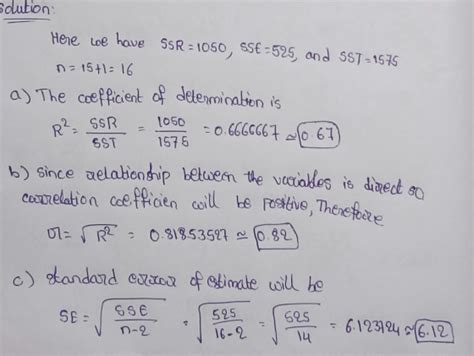 Solution:
Here we have SSR=1050, SSE=525, and SST=1575
n=15+1=16
a) The coefficient of determination is
R² = SSR/SST = 1050/1575 = 0.6666667 ≃ 0.67
b) Since relationship between the variables is direct so
correlation coefficien will be positive, Therefore
r = √R² = 0.81853527 ≃ 0.82
c) standard error of estimate will be
SE = √(SSE/n-2) = √(525/16-2) = √(525/14) = 6.123724 ≃ 6.12